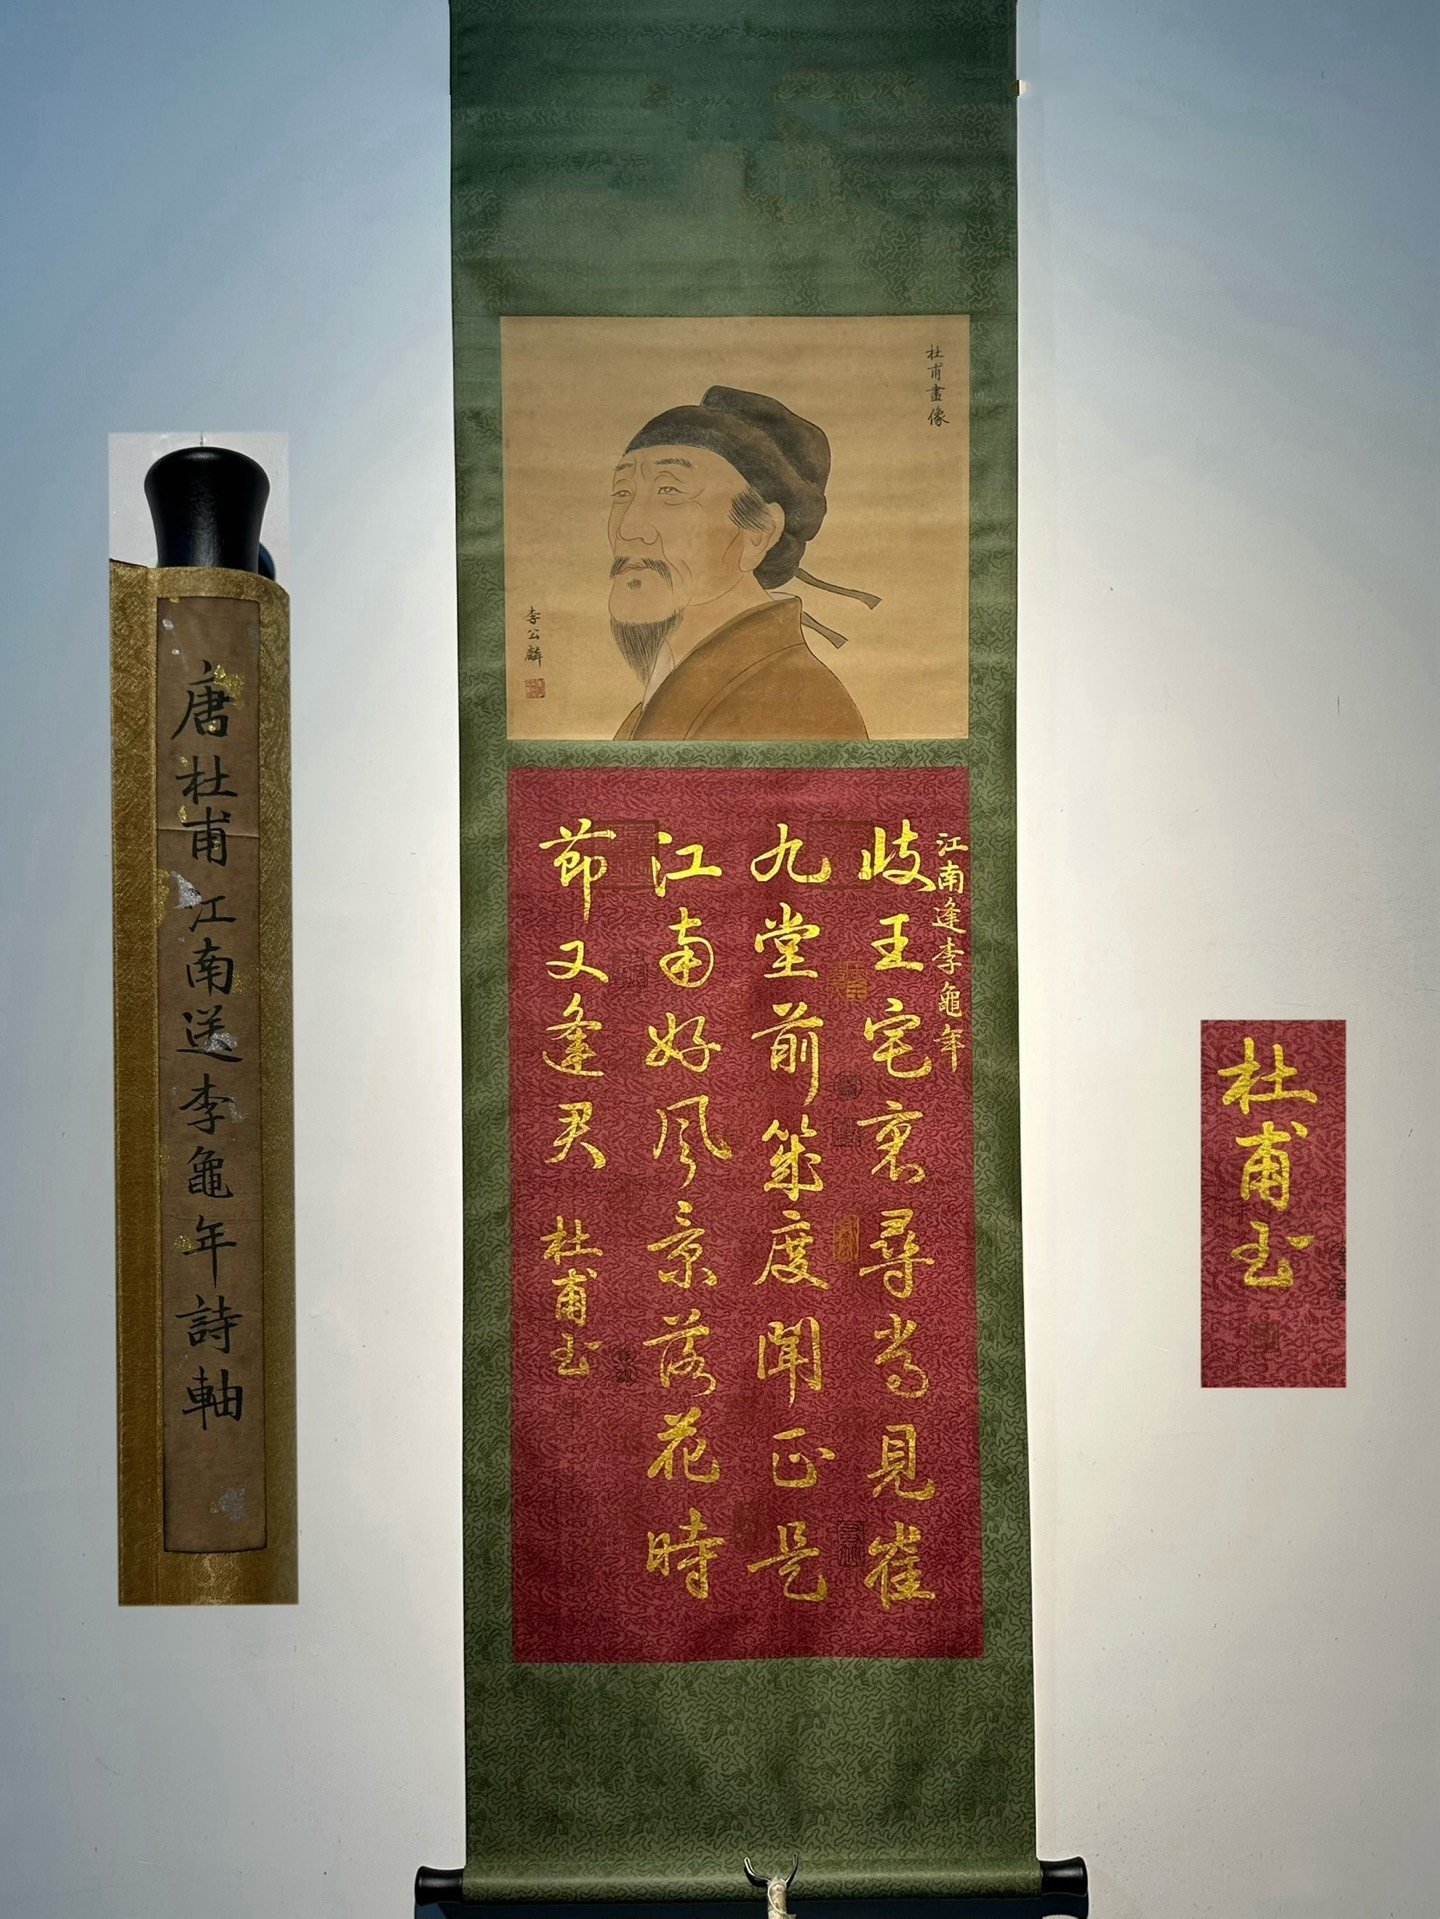 唐杜甫江南送李龜年詩軸
杜甫畫像
李公麟
江南逢李龜年
歧王宅裏尋常見崔
九堂前幾度聞正是
江南好風景落花時
節又逢君
杜甫书
杜甫书